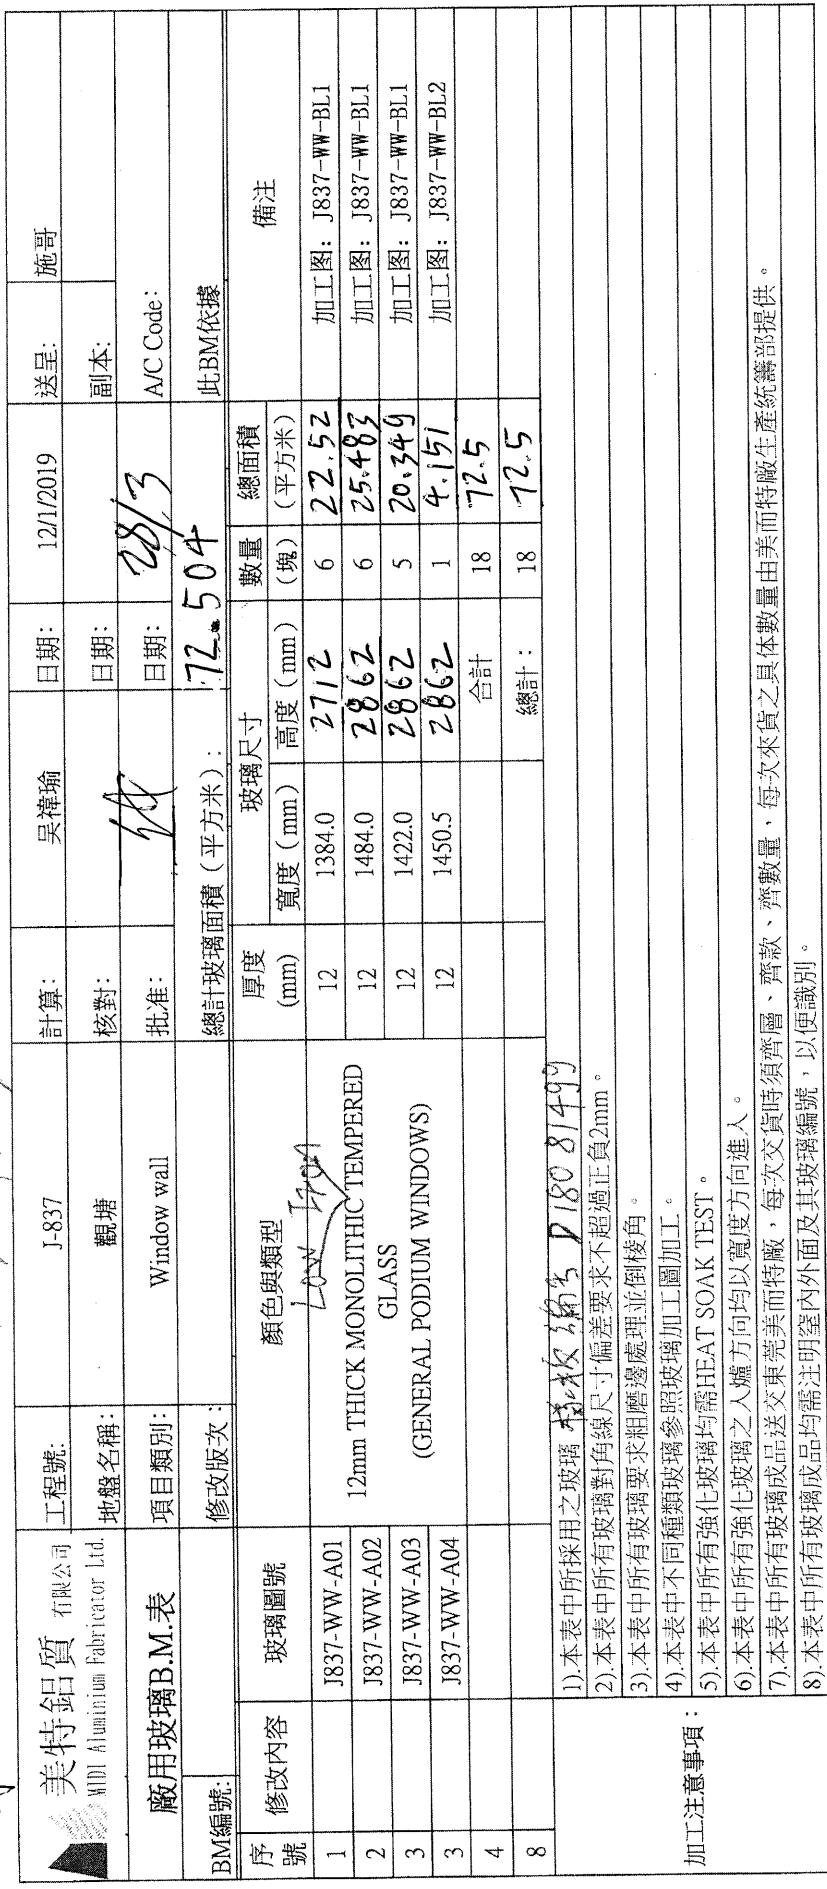 美特鋁質 有限公司
MIDI Aluminium Fabricator Ltd.
工程號: J-837 計算: 吴禕瑜 日期: 12/1/2019 送呈: 施哥
地盤名稱: 觀塘 核對: 日期: 副本:
廠用玻璃B.M.表 項目類別: Window wall 批准: 日期: 28/3 A/C Code:
BM編號: 修改版次: 總計玻璃面積（平方米）: 72.504 此BM依據
序號 修改內容 玻璃圖號 顏色與類型 厚度 (mm) 玻璃尺寸 寬度（mm） 高度（mm） 數量 （塊） 總面積 （平方米） 備注
Low Iron
12mm THICK MONOLITHIC TEMPERED
GLASS
(GENERAL PODIUM WINDOWS)
1 J837-WW-A01 12 1384.0 2712 6 22.52 加工图: J837-WW-BL1
2 J837-WW-A02 12 1484.0 2862 6 25.483 加工图: J837-WW-BL1
3 J837-WW-A03 12 1422.0 2862 5 20.349 加工图: J837-WW-BL1
3 J837-WW-A04 12 1450.5 2862 1 4.151 加工图: J837-WW-BL2
4 合計 18 72.5
8 總計: 18 72.5
加工注意事項:
1).本表中所採用之玻璃 樣板編号 D180 81499
2).本表中所有玻璃對角線尺寸偏差要求不超過正負2mm。
3).本表中所有玻璃要求粗磨邊處理並倒棱角。
4).本表中不同種類玻璃參照玻璃加工圖加工。
5).本表中所有強化玻璃均需HEAT SOAK TEST。
6).本表中所有強化玻璃之入爐方向均以寬度方向進入。
7).本表中所有玻璃成品送交東莞美而特廠，每次交貨時須齊層、齊款、齊數量，每次來貨之具体數量由美而特廠生產統籌部提供。
8).本表中所有玻璃成品均需注明室內外面及其玻璃編號，以便識別。